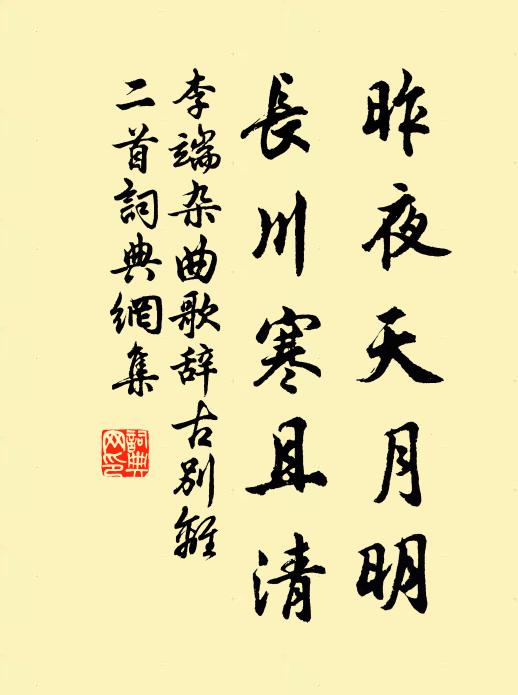 昨夜天月明
長川寒且清
李端杂曲歌辞古别離
二首詞典網集
詞典網印